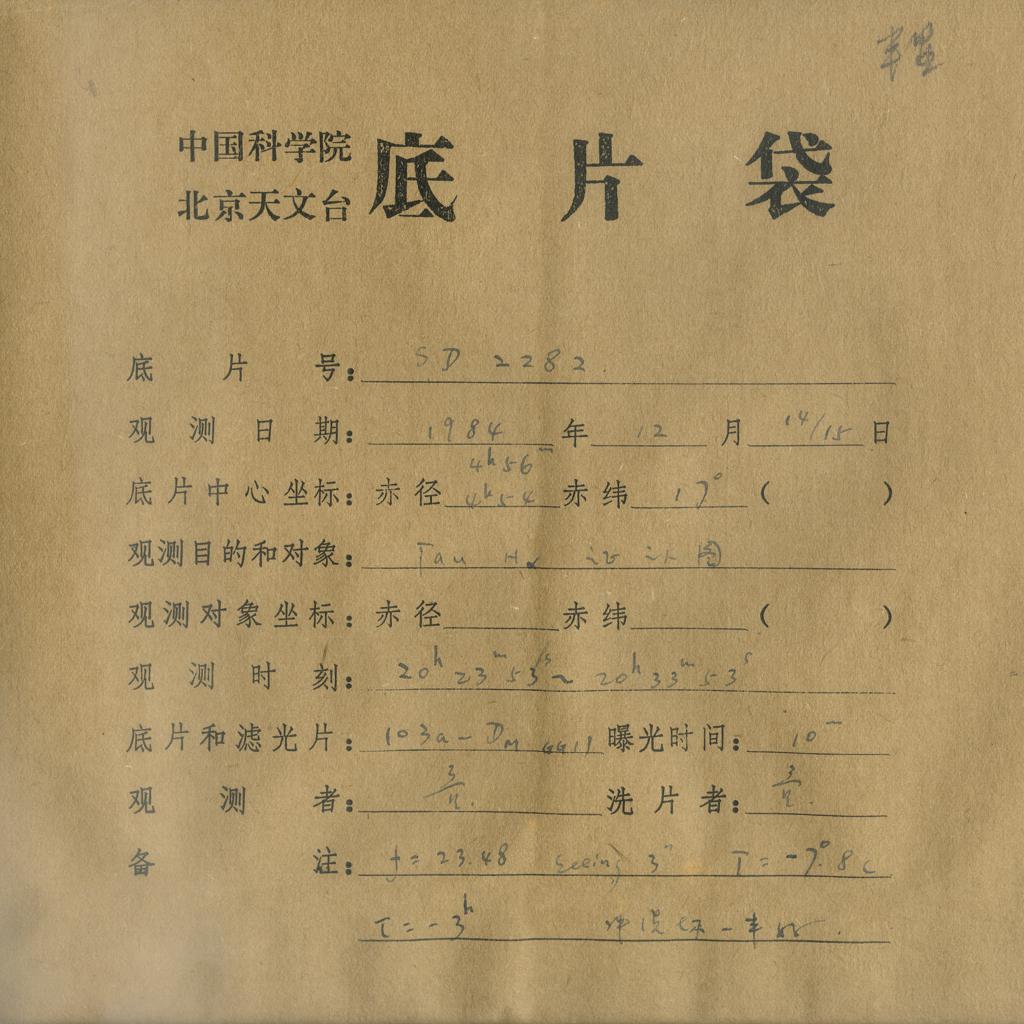 半星
中国科学院
北京天文台
底片袋
底片号: SD 2282
观测日期: 1984年12月14/15日
4h56m
底片中心坐标: 赤径4h54赤纬17°( )
观测目的和对象: Tau Hα 证认图
观测对象坐标: 赤径 赤纬 ( )
观测时刻: 20h23m53s~20h33m53s
底片和滤光片: 103a-D GG11 曝光时间: 10m
观测者: 洗片者:
备注: f=23.48 seeing 3" T=-7°.8C
τ=-3h 一半